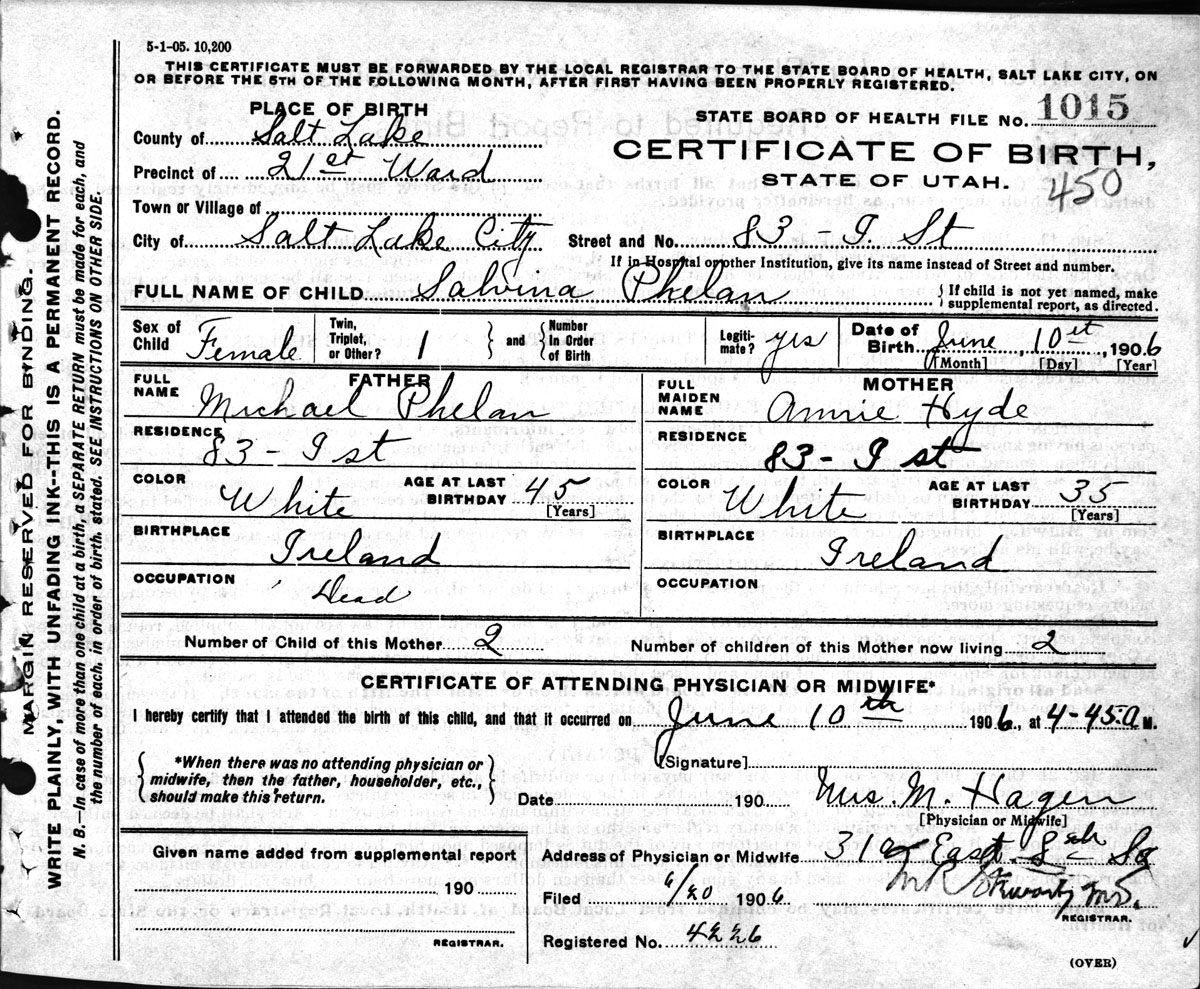 5-1-05. 10,200
THIS CERTIFICATE MUST BE FORWARDED BY THE LOCAL REGISTRAR TO THE STATE BOARD OF HEALTH, SALT LAKE CITY, ON
OR BEFORE THE 5TH OF THE FOLLOWING MONTH, AFTER FIRST HAVING BEEN PROPERLY REGISTERED.
PLACE OF BIRTH
County of Salt Lake
Precinct of 21st Ward
Town or Village of
City of Salt Lake City
STATE BOARD OF HEALTH FILE NO. 1015
CERTIFICATE OF BIRTH,
STATE OF UTAH.
450
Street and No. 83 - I. St
If in Hospital or other Institution, give its name instead of Street and number.
FULL NAME OF CHILD Salvina Phelan { If child is not yet named, make
supplemental report, as directed.
Sex of Child Female
Twin, Triplet, or Other? 1 } and { Number In Order of Birth
Legiti-mate? yes
Date of Birth June 10th, 1906
[Month] [Day] [Year]
FATHER
FULL NAME Michael Phelan
RESIDENCE 83 - I st
COLOR White AGE AT LAST BIRTHDAY 45
[Years]
BIRTHPLACE Ireland
OCCUPATION Dead
MOTHER
FULL MAIDEN NAME Annie Hyde
RESIDENCE 83 - I st
COLOR White AGE AT LAST BIRTHDAY 35
[Years]
BIRTHPLACE Ireland
OCCUPATION
Number of Child of this Mother 2 Number of children of this Mother now living 2
CERTIFICATE OF ATTENDING PHYSICIAN OR MIDWIFE*
I hereby certify that I attended the birth of this child, and that it occurred on June 10th 1906, at 4-45 a M.
{ *When there was no attending physician or
midwife, then the father, householder, etc.,
should make this return. }
(Signature]
Date 190 Mrs. M. Hagen
[Physician or Midwife]
Given name added from supplemental report
190
REGISTRAR.
Address of Physician or Midwife East So
Filed 6/20 1906
REGISTRAR.
Registered No. 4226
(OVER)
MARGIN RESERVED FOR BINDING.
WRITE PLAINLY, WITH UNFADING INK--THIS IS A PERMANENT RECORD.
N. B.--In case of more than one child at a birth, a SEPARATE RETURN must be made for each, and
the number of each, in order of birth, stated. SEE INSTRUCTIONS ON OTHER SIDE.